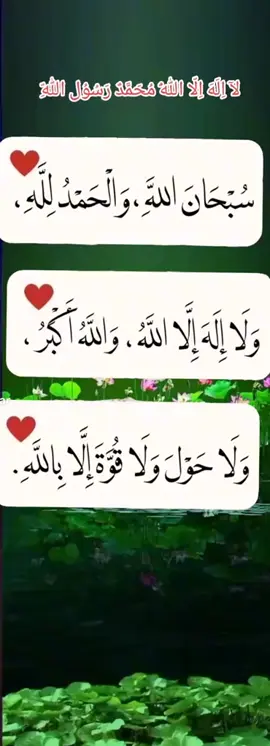 لآ اِلَهَ اِلَّا اللّٰهُ مُحَمَّدٌ رَسُوْلُ اللّٰهِ
سُبْحَانَ اللَّهِ، وَالْحَمْدُ لِلَّهِ،
وَلَا إِلَهَ إِلَّا اللَّهُ، وَاللَّهُ أَكْبَرُ،
وَلَا حَوْلَ وَلَا قُوَّةَ إِلَّا بِاللَّهِ.